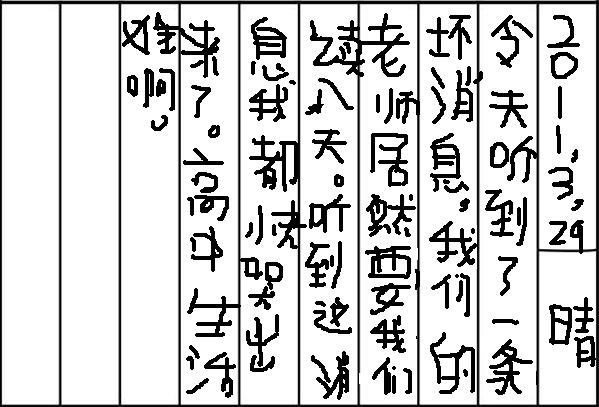 2011,3,29 晴
今天听到了一条
坏消息,我们的
老师居然要我们
续八天。听到这消
息我都快哭出
来了。高中生活
难啊。